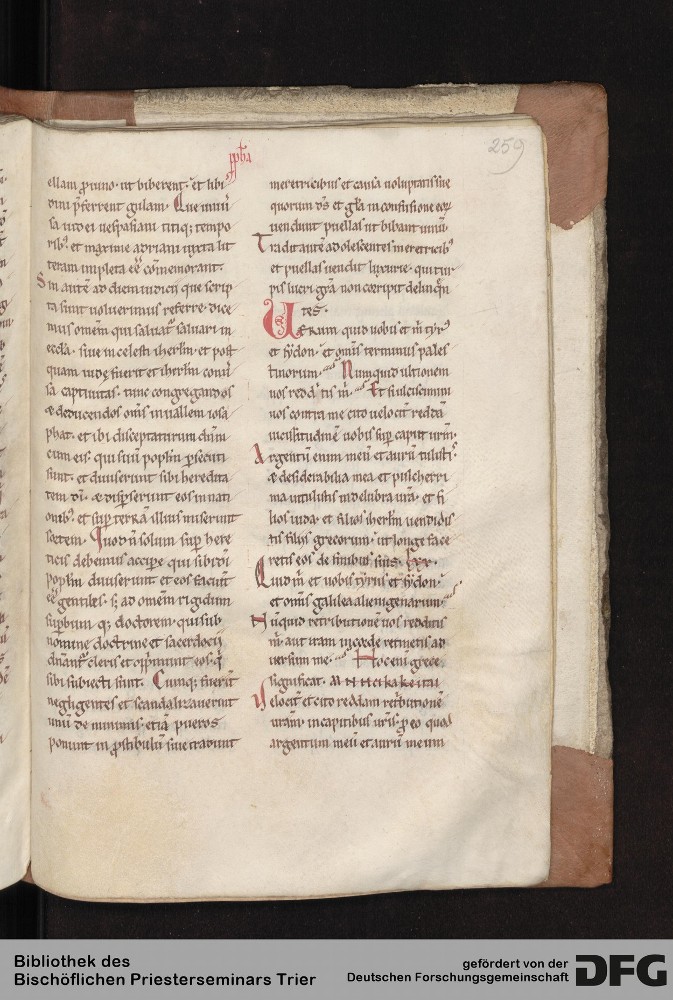 259
ellam ꝓ uino · ut biberent · et sibi
uini p̄ferrent gulam · Que uniũ
sa iudei uespasiani titiq; tempo
rib; et maxime adriani iuxta lit
teram impleta eē cōmemorant ·
Sin autē ad diem iudicii que scrip
ta sunt uoluerimus referre · dice
mus omēm qui saluat᷑ saluari in
eccła · siue in celesti iherłm · et post
quam iudę fuerit et iherłm conũsa
sa captiuitas · tunc congregandos
& deducendos om̄s in uallem iosa
phat · et ibi disceptaturum dn̄m
cum eis · qui suũ popłm ꝑsecuti
sunt · et diuiserunt sibi heredita
tem dī · & disꝑserunt eos in nati
onib; et suꝑ terrā illius miserunt
sortem · Quod ñ solum suꝑ here
ticis debemus accipe qui sibi dī
popłm diuiserunt et eos faciunt
eē gentiles · s; ad omēm rigidum
suꝑbum q; doctorem · qui sub
nomine doctrine et sacerdocii
dn̄ant᷑ cleris et opp̄munt eos · q̄
sibi subiecti sunt · Cumq; fuerint
negligentes et scandalizauerint
unũ de minimis · etiā pueros
ponunt in ꝓstibulũ siue tradunt
meretricibus et causa uoluptatis siue
quorum d̄s et gła in confusione eoꝝ
uendunt puellas ut bibant uinũ ·
Tradit autē adolescentes meretricib;
et puellas uendit luxurie · qui tur
pis lucri grā non corripit delinq̄n
tes ·
UERum quid uobis et m̄ tyr;
et sydon · et om̄is terminus pales
tinorum · Numquid ultionem
uos redditis m̄ · Et si ulciscimini
uos contra me cito uelocit᷑ reddā
uicissitudinē uobis suꝑ caput ur̄m ·
Argentũ enim meũ et aurũ tulistis
& desiderabilia mea et pulcherri
ma intulistis in delubra ur̄a · et fi
lios iuda · et filios iherłm uendidis
tis filiis grecorum · ut longe face
retis eos de finibus suis · lxx ·
Quid m̄ et uobis tyrus et sydon ·
et om̄is galilea alienigenarum ·
Nũquid retributionē uos redditis
m̄ · aut iram in corde retinetis ad
uersum me · Hoc enī grece
significat ·
Velocit᷑ et cito reddam retbutionē
ur̄am · in capitibus ur̄is · ꝓ eo quod
argentum meũ et aurũ meum
Bibliothek des
Bischöflichen Priesterseminars Trier
gefördert von der
Deutschen Forschungsgemeinschaft
DFG